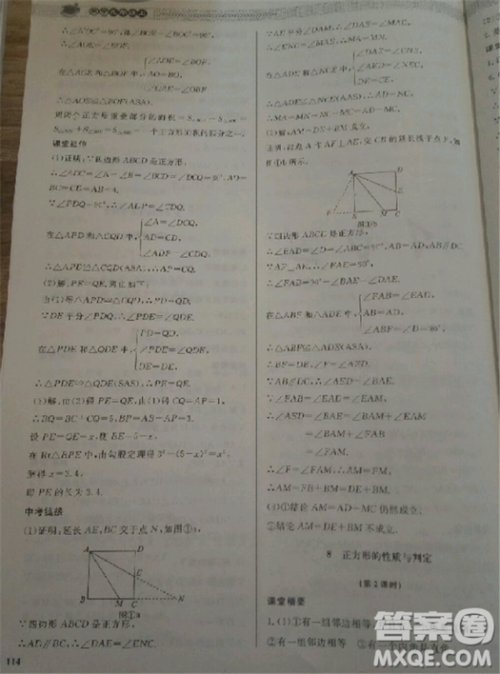 ∴∠AOE=∠BOF.
∠AOE=∠BOF,
在△AOE和△BOF中 AO=BO,
∠OAE=∠OBF
∴△AOE≌△BOF(ASA).
课堂延伸
(1)证明:∵四边形ABCD是正方形,
∴∠ADC=∠A=∠B=∠BCD=∠DCQ=90°,AD=
BC=CD=AB=4.
∵∠PDQ=90°,∴∠ADP=∠CDQ.
∠A=∠DCQ,
在△APD和△CQD中, AD=CD,
∠ADP=∠CDQ
∴△APD≌△CQD(ASA).∴AP=CQ.
(2)解:PE=QE.理由如下:
由(1)得△APD≌△CQD,∴PD=QD.
∵DE平分∠PDQ,∴∠PDE=∠QDE.
PD=QD,
在△PDE和△QDE中, ∠PDE=∠QDE,
DE=DE.
∴△PDE≌△QDE(SAS),∴PE=QE.
(3)解:由(2)得PE=QE,由(1)得CQ=AP=1.
∴BQ=BC+CQ=5,BP=AB-AP=3.
设PE=QE=x,则BE=5-x.
在Rt△BPE中,由勾股定理得3²+(5-x)²=x².
解得x=3.4.
即PE的长为3.4.
中考链接
(1)证明:延长AE,BC交于点N,如图①a,
A D
E
B M C N
图①a
∵四边形ABCD是正方形,
∴AD∥BC.∴∠DAE=∠ENC.
114
∵AE平分∠DAM,∴∠DAE=∠MAE.
∴∠ENC=∠MAE.∴MA=MN.
∠DAE=∠CNE,
在△ADE和△NCE中, ∠AED=∠NEC,
DE=CE.
∴△ADE≌△NCE(AAS).∴AD=NC.
∴MA=MN=NC+MC=AD+MC.
(2)解:AM=DE+BM成立.
证明:过点A作AF⊥AE,交CB的延长线于点F,如
A D
E
F B M C
图①b
∵四边形ABCD是正方形,
∴∠BAD=∠D=∠ABC=90°,AB=AD,AB∥DC.
∵AF⊥AE,∴∠FAE=90°.
∴∠FAB=90°-∠BAE=∠DAE.
∠FAB=∠EAD,
在△ABF和△ADE中, AB=AD,
∠ABF=∠D=90°,
∴△ABF≌△ADE(ASA).
∴BF=DE,∠F=∠AED.
∵AB∥DC,∴∠AED=∠BAE.
∵∠FAB=∠EAD=∠EAM,
∴∠AED=∠BAE=∠BAM+∠EAM
=∠BAM+∠FAB
=∠FAM.
∴∠F=∠FAM.∴AM=FM.
∴AM=FB+BM=DE+BM.
(3)①结论AM=AD+MC仍然成立.
②结论AM=DE+BM不成立.
8 正方形的性质与判定
(第2课时)
课堂精要
1.(1)①有一组邻边相等
②有一组邻边相等
答案圈
MXQE.COM